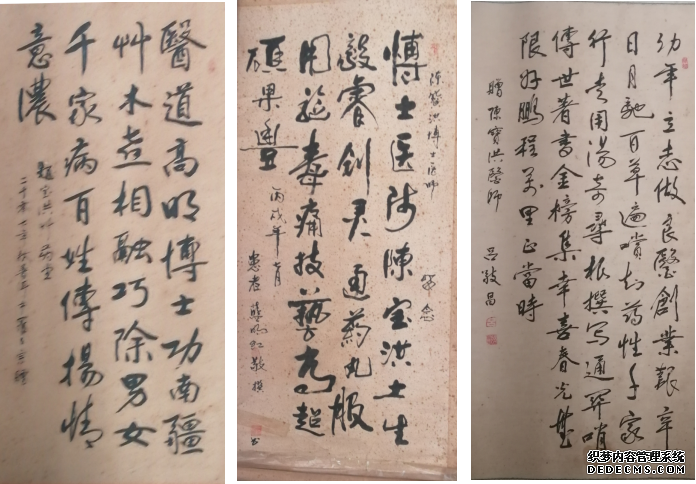 醫道高明博士功南疆
艸木相融巧除男女
千家病百姓傳揚情
意濃
陳寶洪博士医师
留念
博士医师陳宝洪土生
睿創灵通药丸服
用毒痛技藝高超
碩果豐
丙戌年七月
患者 敬撰
幼年立志做良醫創業艱辛
日月馳百草遍嚐知葯性千家
行走用湯奇尋根撰写通
傳世著書金榜集幸喜春光無
限好鵬程萬里正當時
贈陳寶洪醫師
吕敬昌
织梦内容管理系统
DEDECMS.COM